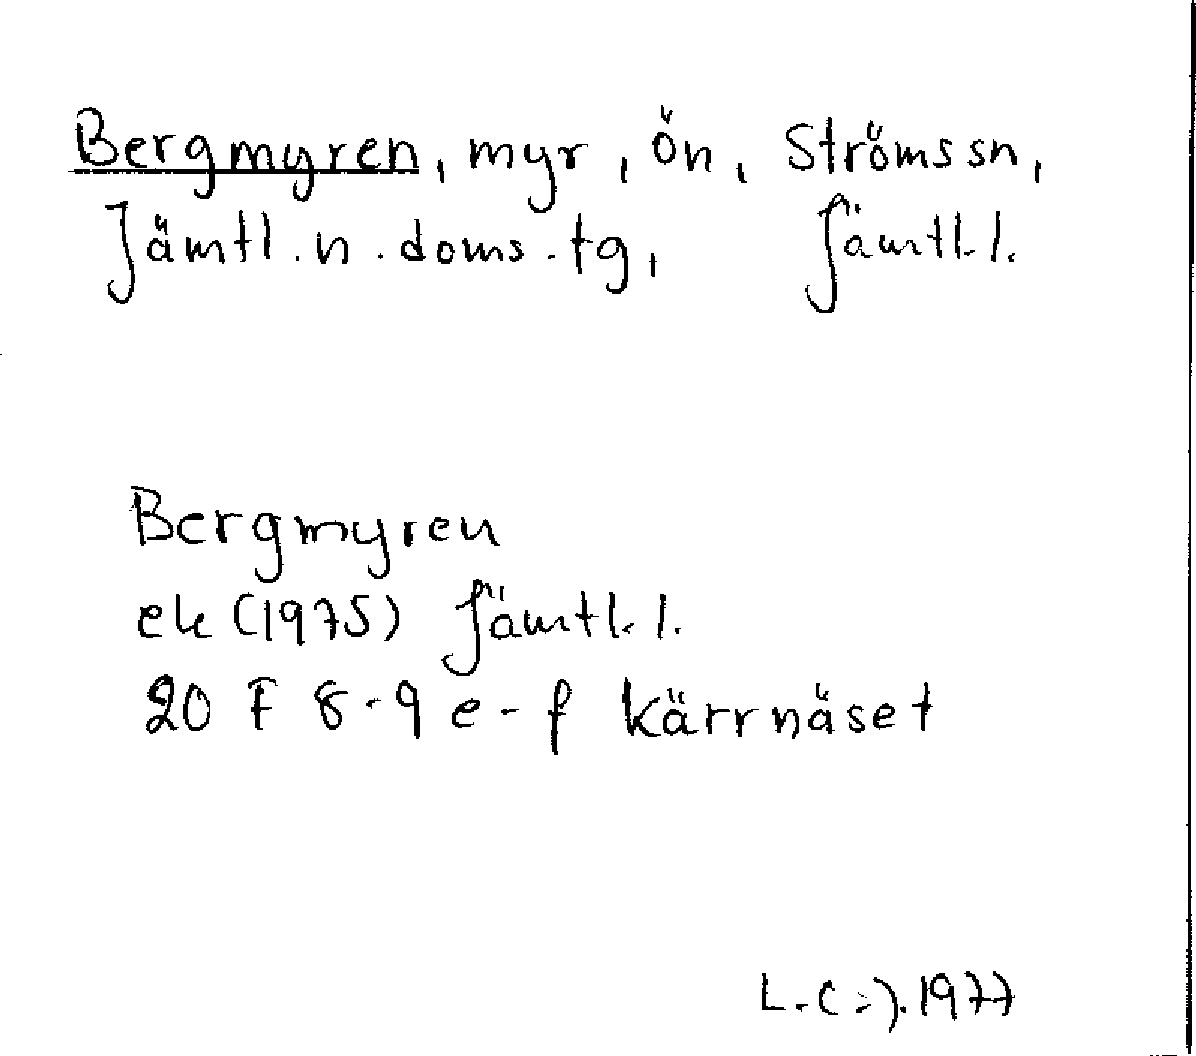 Bergmyren, myr, Ön, Ströms sn,
Jämtl. n. doms. tg, Jämtl. l.
Bergmyren
ek (1975) Jämtl. l.
20 F 8-9 e-f Kärrnäset
1977